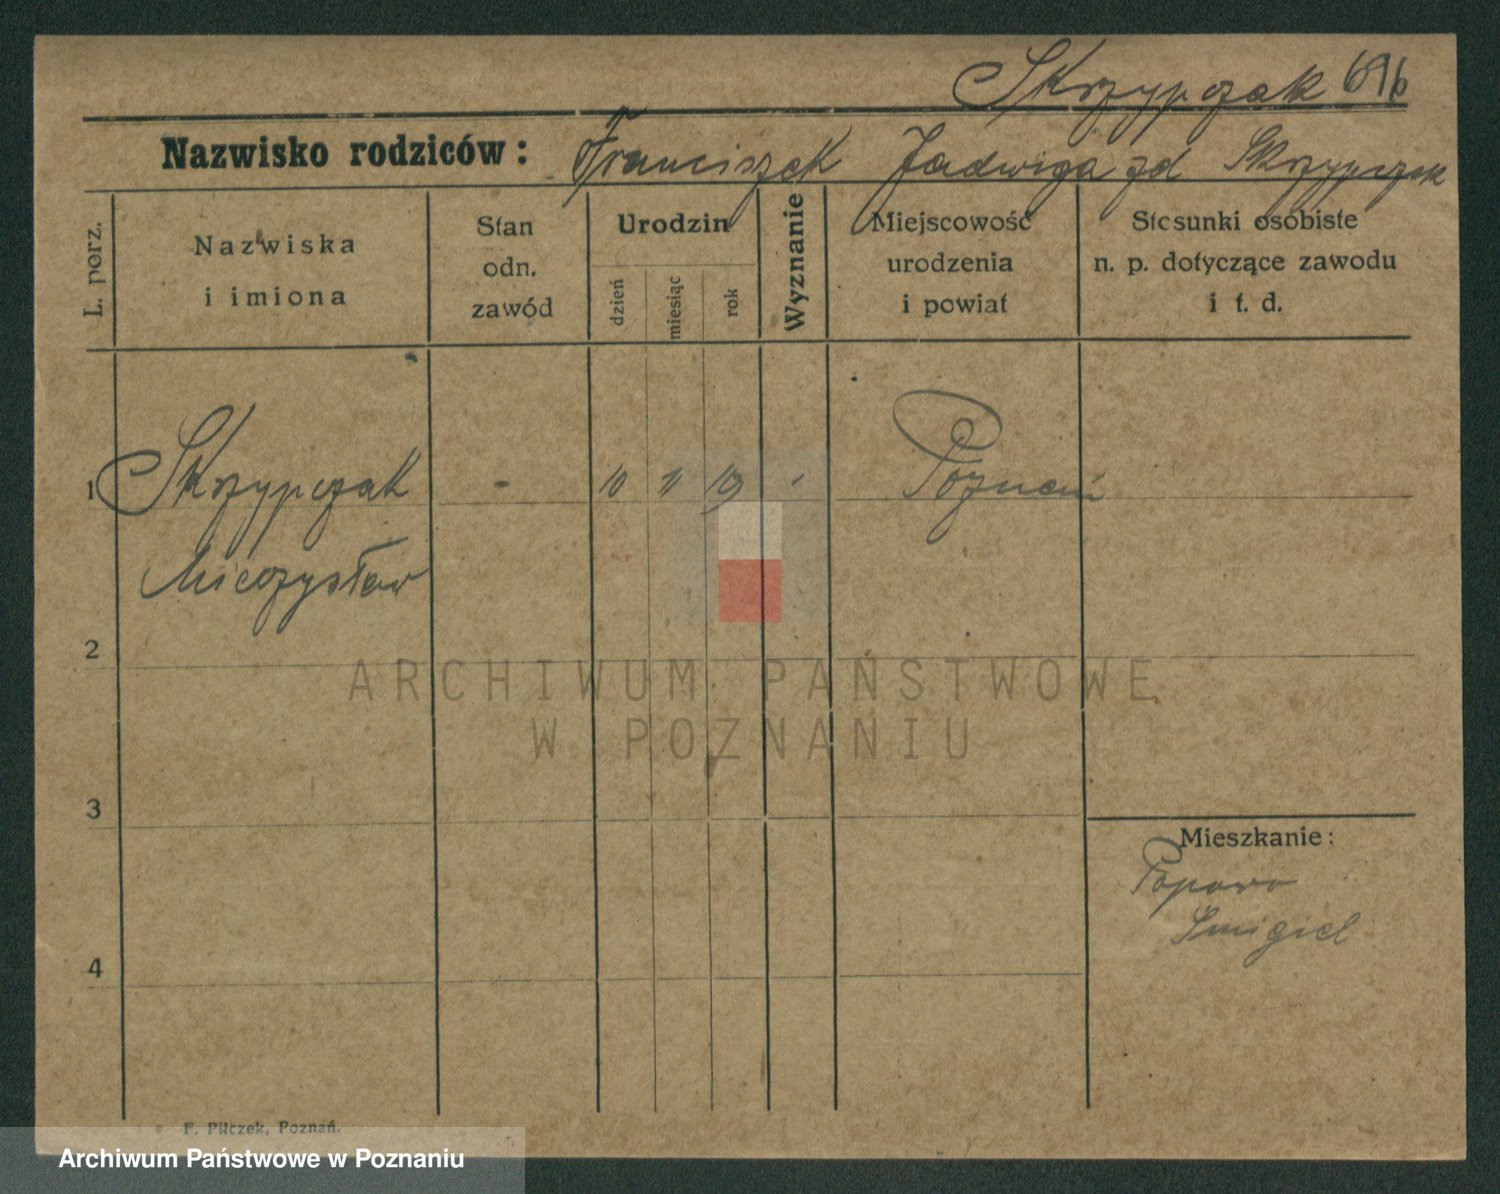 Skrzypczak 696
Nazwisko rodziców: Franciszek Jadwiga zd Skrzypczak
L. porz.
Nazwiska
i imiona
Stan
odn.
zawód
Urodzin
dzień
miesiąc
rok
Wyznanie
Miejscowość
urodzenia
i powiat
Stosunki osobiste
n. p. dotyczące zawodu
i t. d.
1 Skrzypczak - 10 11 19 - Poznań
Mieczysław
2
3
4
Mieszkanie:
Popowo
Śmigiel
F. Pilczek, Poznań.
ARCHIWUM PAŃSTWOWE
W POZNANIU
Archiwum Państwowe w Poznaniu